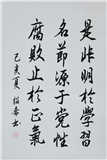 是非明於學習
名節源于党性
腐败止於正氣
己亥夏